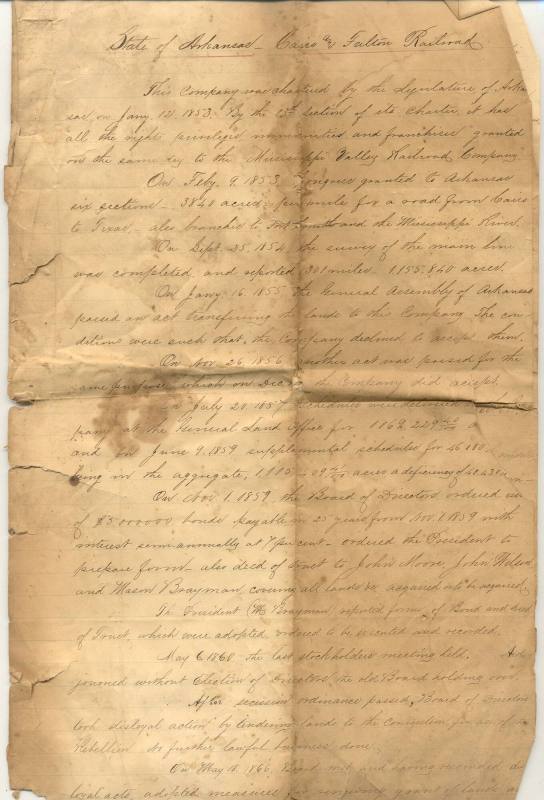 State of Arkansas - Cairo & Fulton Railroad
This Company was chartered by the Legislature of Arkan
sas, on Jany. 12, 1853. By the 13th section of its charter it has
all the rights privileges immunities and franchises granted
on the same day to the Mississippi Valley Railroad Company
On Feby. 9. 1853 Congress granted to Arkansas
six sections - 3840 acres per mile for a road from Cairo
to Texas, - also branches to Fort Smith and the Mississippi River.
On Sept. 25. 1854 the survey of the main line
was completed, and reported 301 miles 1.155.840 acres.
On Jany. 16. 1855 the General Assembly of Arkansas
passed an act transferring the lands to this Company The con
ditions were such that the Company declined to accept them.
On Nov. 26. 1856 another act was passed for the
same purpose, which on Dec the Company did accept.
On July 20. 1857 schedules were delivered
pany at the General Land Office for
and on June 9. 1859 supplemental schedules for
being in the aggregate, acres a deficiency of
On Nov 1. 1859, the Board of Directors ordered
of $5.000000 bonds payable in 25 years from Nov. 1. 1859 with
interest semi-annually at 7 per cent - ordered the President to
prepare forms - also deed of trust to John Moore, John Wilson
and Mason Brayman, covering all lands &c acquired or to be acquired
The President (M Brayman) reported forms of Bond and deed
of Trust, which were adopted, ordered to be executed and recorded.
May 6. 1860 the last stockholders meeting held. Ad
journed without Election of Directors the old Board holding over.
After secession ordinance passed, Board of Directors
took disloyal action by tendering lands to the Convention for
Rebellion No further lawful business done.
On May 10. 1866, Board met and having rescinded
loyal acts, adopted measures for